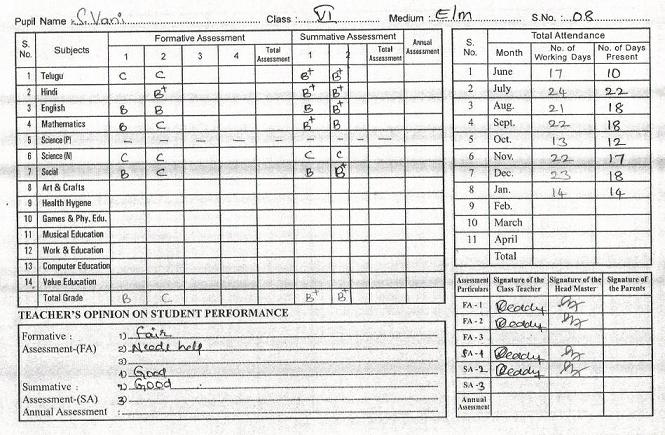 Pupil Name : S.Vani Class : VI Medium : E/m S.No. : 08
S. No. Subjects Formative Assessment Summative Assessment Annual Assessment
1 2 3 4 Total Assessment 1 2 Total Assessment
1 Telugu C C B+ B+
2 Hindi B+ B+ B+
3 English B B B B+
4 Mathematics B C B+ B
5 Science (P) – – – – – – – –
6 Science (N) C C C C
7 Social B C B B+
8 Art & Crafts
9 Health Hygene
10 Games & Phy. Edu.
11 Musical Education
12 Work & Education
13 Computer Education
14 Value Education
Total Grade B C B+ B+
TEACHER'S OPINION ON STUDENT PERFORMANCE
Formative : 1) fair
Assessment-(FA) 2) Needs help
3)
1) Good
Summative : 2) Good
Assessment-(SA) 3)
Annual Assessment :
S. No. Month Total Attendance
No. of Working Days No. of Days Present
1 June 17 10
2 July 24 22
3 Aug. 21 18
4 Sept. 22 18
5 Oct. 13 12
6 Nov. 22 17
7 Dec. 23 18
8 Jan. 14 14
9 Feb.
10 March
11 April
Total
Assessment Particulars Signature of the Class Teacher Signature of the Head Master Signature of the Parents
FA - 1 Reddy
FA - 2 Reddy
FA - 3
SA - 1 Reddy
SA - 2 Reddy
SA - 3
Annual Assessment